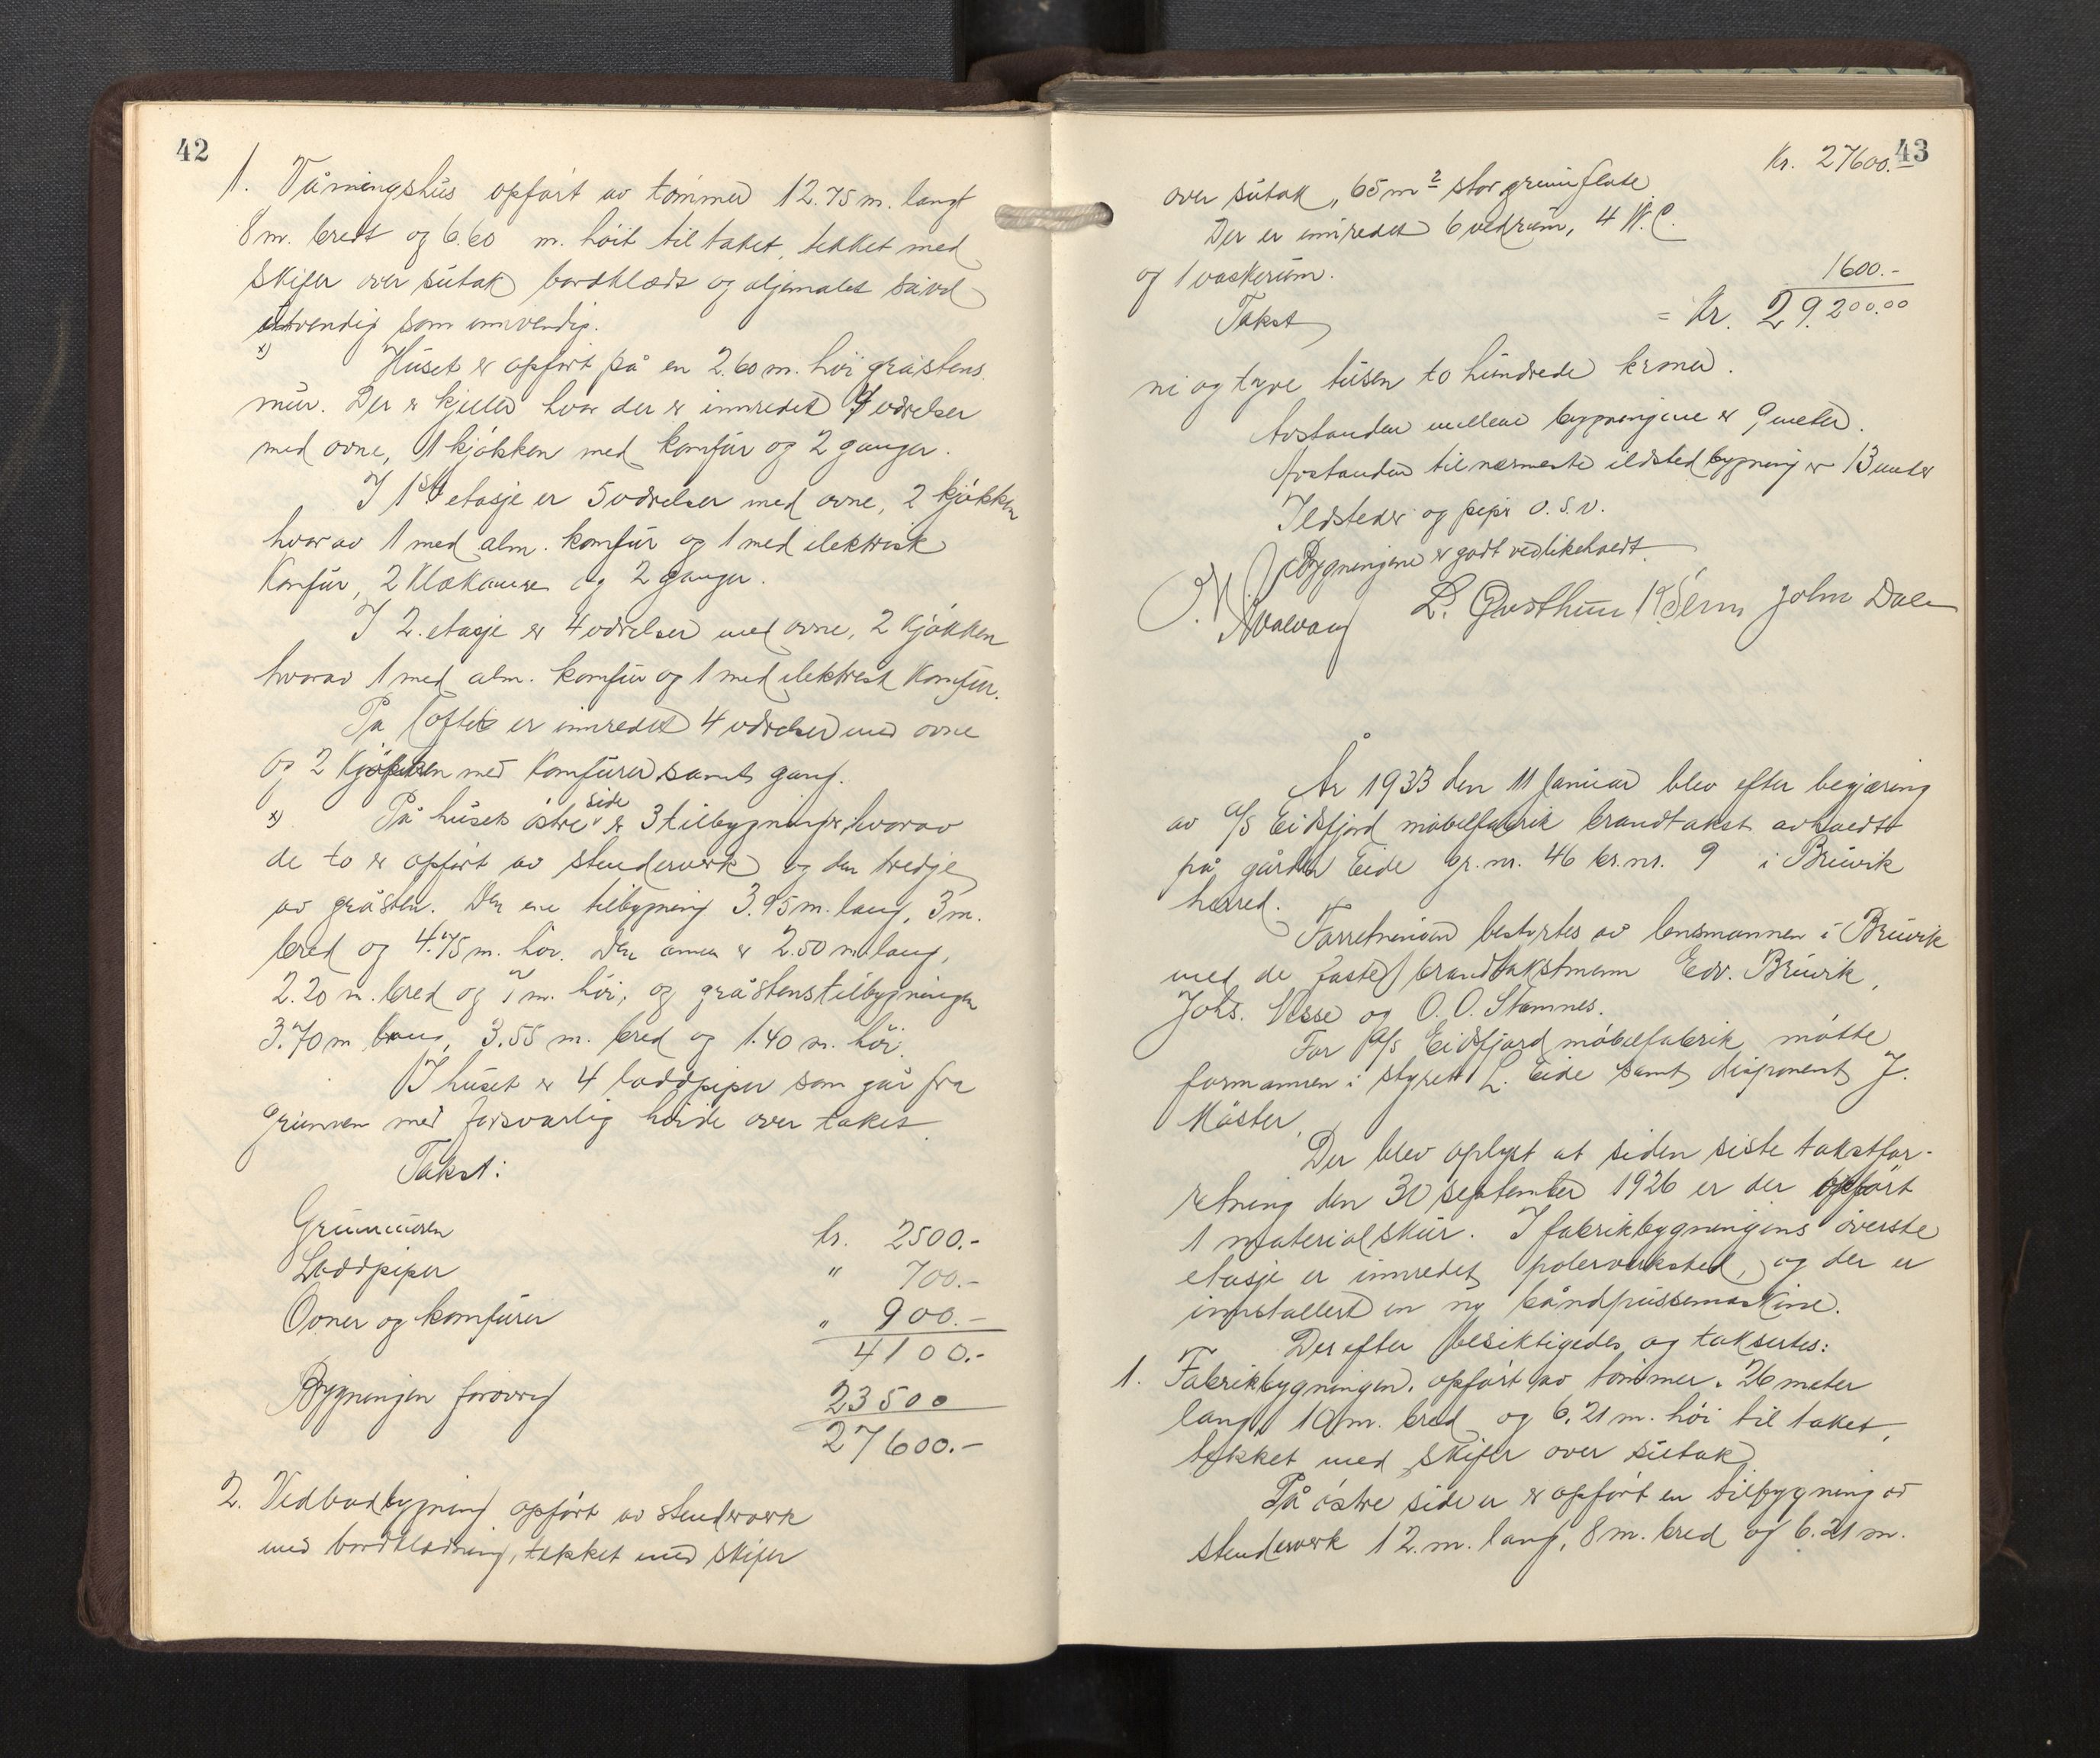 42
1. Våningshus opført av tømmer 12.75 m. langt
8 m. bredt og 6.60 m. høit til taket, tekket med
skifer over sutak bordklædt og oljemalet såvel
utvendig som innvendig.
x) Huset er opført på en 2.60 m. høi gråstens
mur. Der er kjeller hvor der er innredet 4 værelser
med ovne, 1 kjøkken med komfur og 2 ganger.
I 1ste etasje er 5 værelser med ovne, 2 kjøkken
hvorav 1 med alm. komfur og 1 med elektrisk
Komfur, 2 Klækamre og 2 ganger.
I 2. etasje er 4 værelser med ovne, 2 kjøkken
hvorav 1 med alm. komfur og 1 med elektrisk Komfur.
På loftet er innredet 4 værelser med ovne
og 2 Kjøkken med Komfurer samt gang.
x) På husets østre side er 3 tilbygninger, hvorav
de to er opført av stenderverk og den tredje
av gråsten. Den ene tilbygning 3.95 m. lang, 3 m.
bred og 4.75 m. høi. Den annen er 2.50 m. lang,
2.20 m. bred og 7 m. høi, og gråstenstilbygningen
3.70 m lang, 3.55 m. bred og 1.40 m. høi.
I huset er 4 loddpiper som går fra
Grunnen med forsvarlig høide over taket.
Takst:
Grunnmuren kr. 2500.-
Loddpiper " 700.-
Ovner og komfurer " 900.-
4100.-
Bygningen forøvrig 23500
27600.-
2. Vedbodbygning opført av stenderverk
med bordklædning, tekket med skifer
43
Kr. 27600.-
over sutak, 65 m2 stor grunnflate.
Der er innredet 6 vedrum, 4 W.C.
og 1 vaskerum. 1600.-
Takst = Kr. 29.200.00
ni og tyve tusen to hundrede kroner.
Avstanden mellem bygningene er 9 meter.
Avstanden til nærmeste ildsted bygning er 13 meter
Ildsteder og piper o.s.v.
Bygningene er godt vedlikeholdt.
John Dale
År 1933 den 11 Januar blev efter begjæring
av A/S Eidsfjord møbelfabrik brandtakst avholdt
på gården Eide gr.nr. 46 br.nr. 9 i Bruvik
herred.
Forretningen bestyrtes av lensmannen i Bruvik
med de faste brandtakstmenn Edv. Bruvik,
Johs. Vesse og O. O. Stamnes.
For A/S Eidsfjord møbelfabrik møtte
formannen i styret L. Eide samt disponent J.
Møster.
Der blev oplyst at siden siste takstfor-
retning den 30 september 1926 er der opført
1 materialskur. I fabrikbygningens øverste
etasje er innredet polerverksted, og der er
innstallert en ny båndpussemaskine.
Derefter besiktigedes og taksertes:
1. Fabrikbygningen, opført av tømmer. 26 meter
lang, 10 m. bred og 6,21 m. høi til taket,
tekket med skifer over sutak
På østre side er er opført en tilbygning av
stenderverk 12. m. lang, 8 m. bred og 6.21 m.